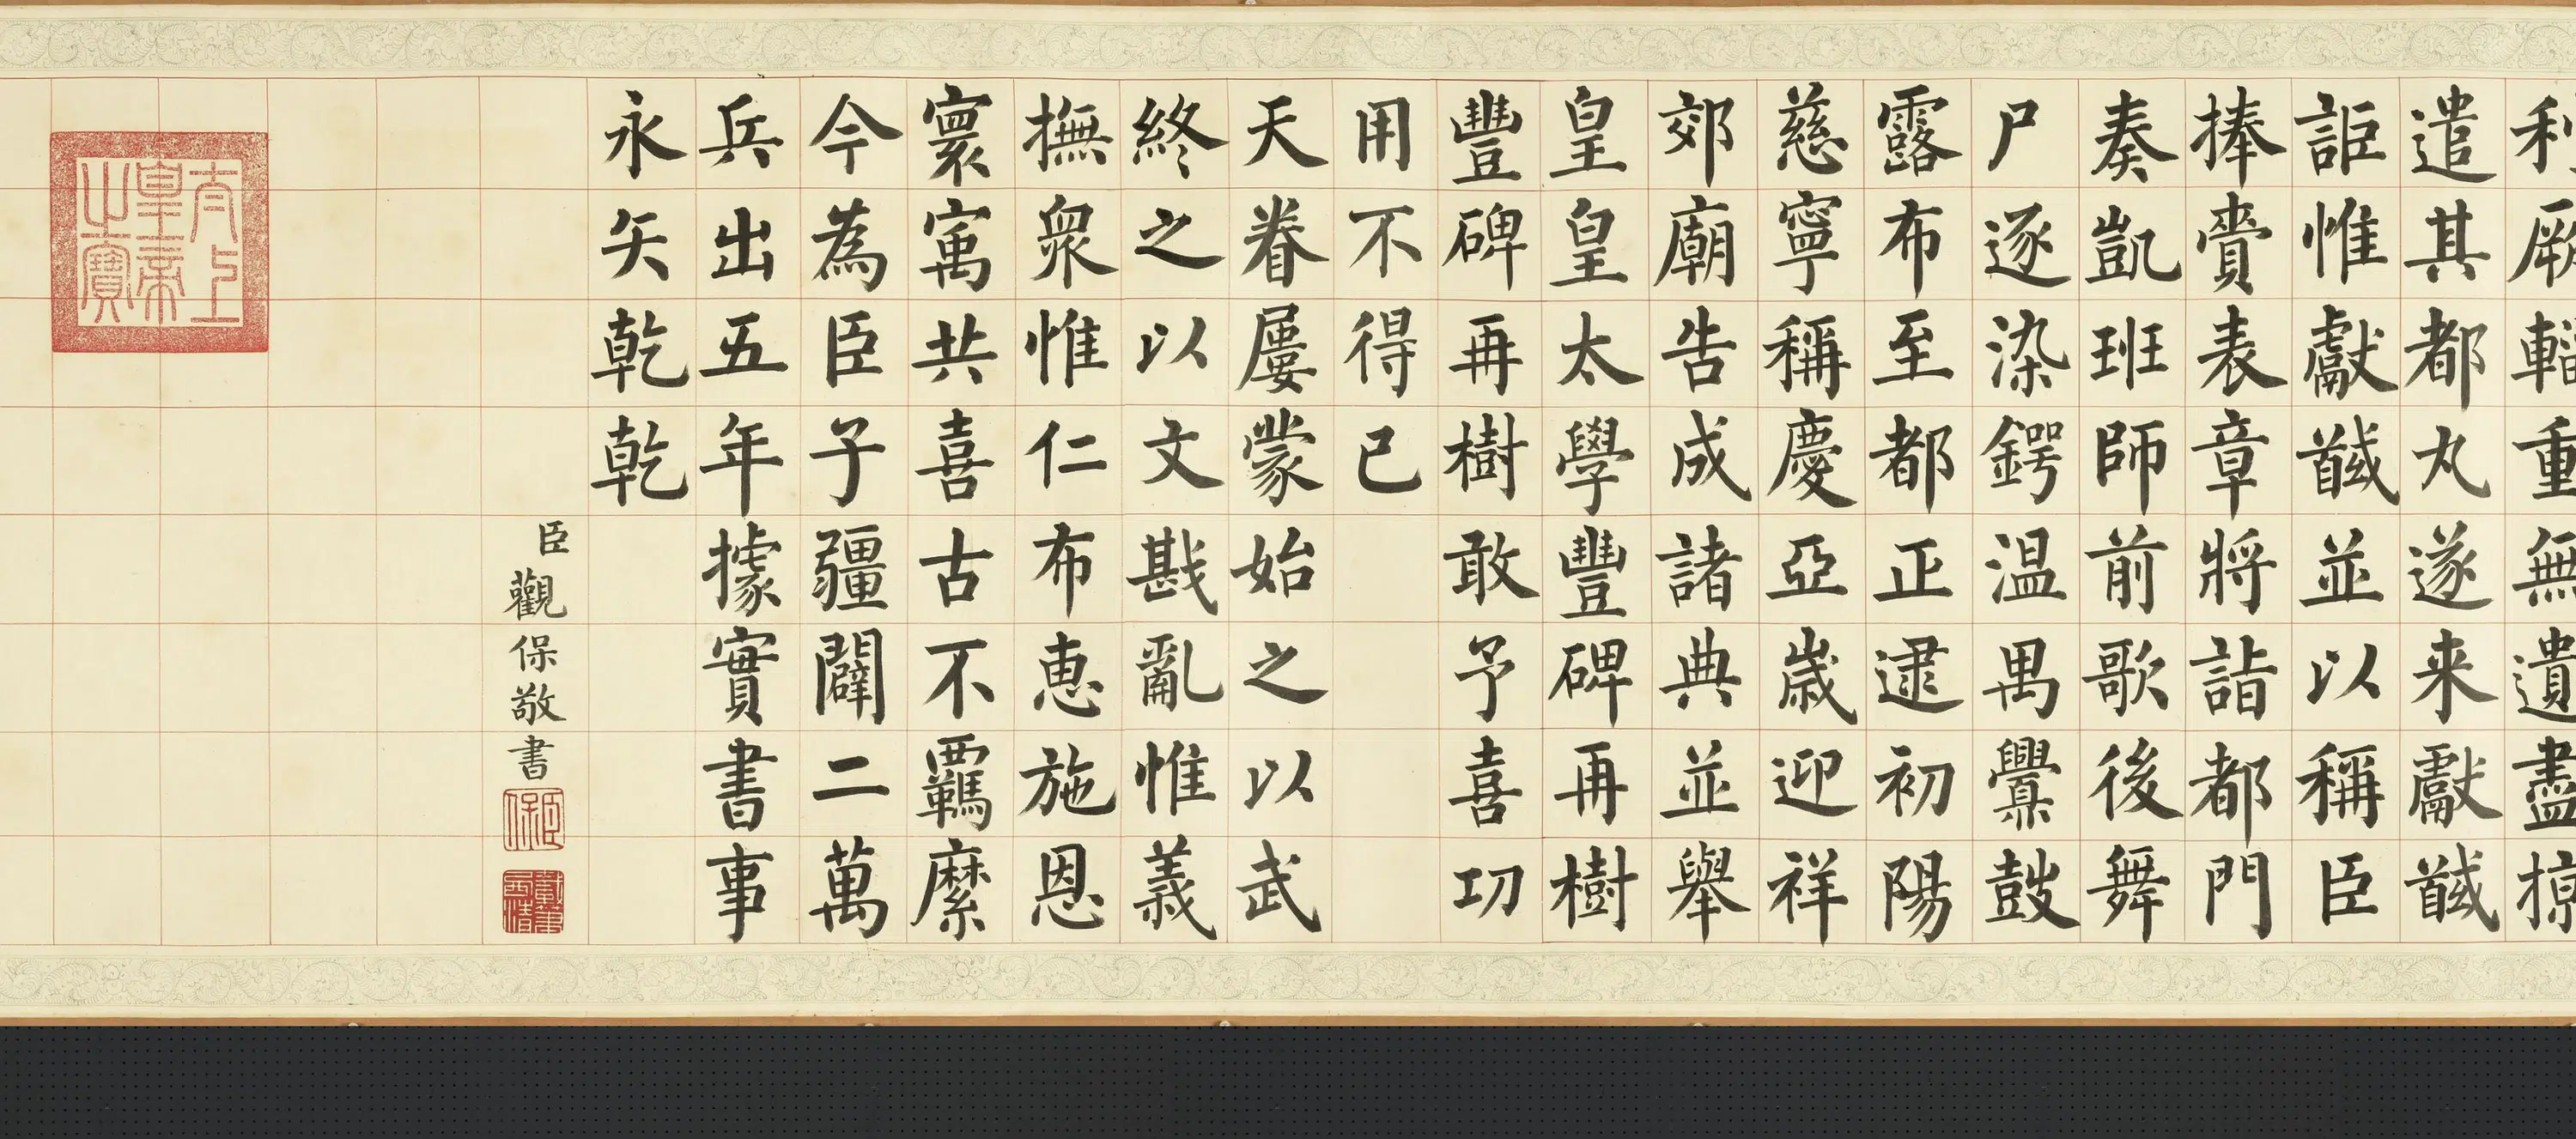 利厥輜重無遺盡掠
遣其都丸遂来獻馘
詎惟獻馘並以稱臣
捧賷表章將詣都門
奏凱班師前歌後舞
尸逐染鍔温禺釁鼓
露布至都正逮初陽
慈寧稱慶亞歲迎祥
郊廟告成諸典並舉
皇皇太學豐碑再樹
豐碑再樹敢予喜功
用不得已
天眷屢蒙始之以武
終之以文戡亂惟義
撫衆惟仁布恵施恩
寰寓共喜古不羈縻
今為臣子疆闢二萬
兵出五年據實書事
永矢乾乾
臣觀保敬書
太上皇帝之寶